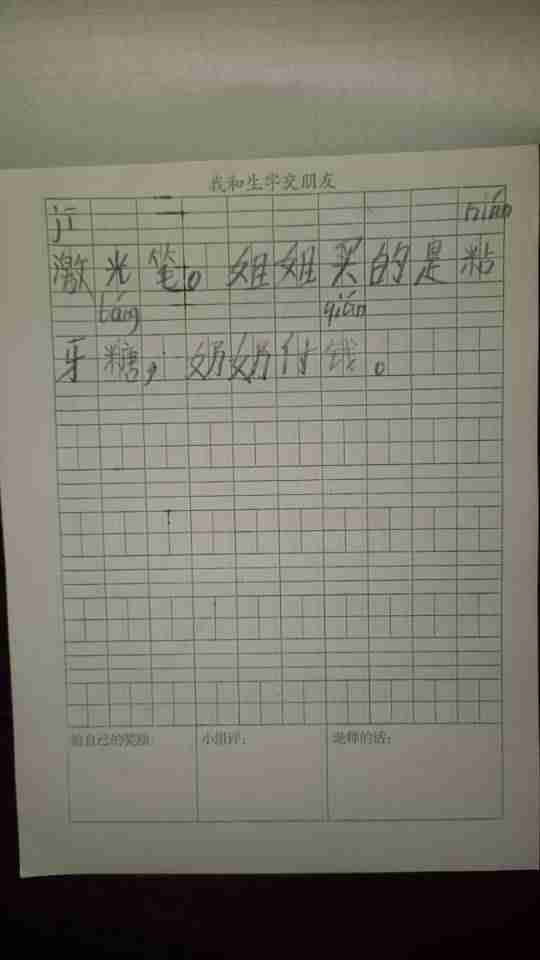 我和生字交朋友
jī nián
激光笔。姐姐买的是粘
táng qián
牙糖，奶奶付钱。
给自己的奖励：
小组评：
老师的话：